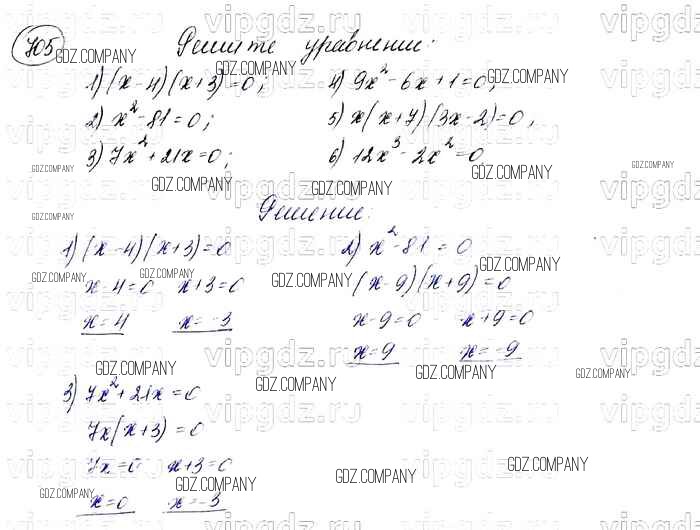 705 Решите уравнения:
1) (x-4)(x+3)=0;
2) x²-81=0;
3) 7x²+21x=0;
4) 9x²-6x+1=0;
5) x(x+7)(3x-2)=0;
6) 12x³-2x²=0
Решение:
1) (x-4)(x+3)=0
x-4=0 x+3=0
x=4 x=-3
2) x²-81=0
(x-9)(x+9)=0
x-9=0 x+9=0
x=9 x=-9
3) 7x²+21x=0
7x(x+3)=0
7x=0 x+3=0
x=0 x=-3
GDZ.COMPANY
vipgdz.ru